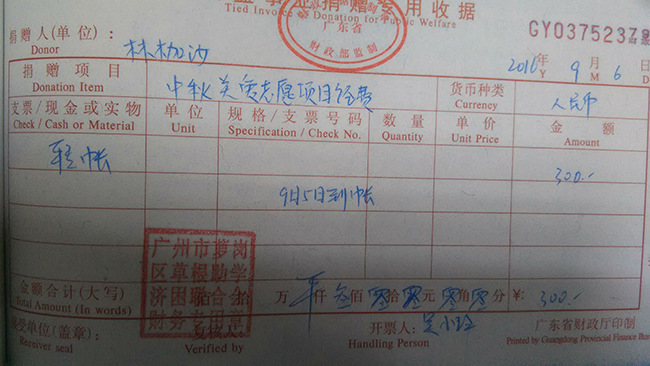 公益事业捐赠专用收据
Tied Invoice Donation for Public Welfare
广东省
财政部监制
GY03752378
捐赠人(单位):
Donor
林枷沙
2016年 9月 6日
Y M D
捐赠项目 中秋关爱志愿项目经费 货币种类 人民币
Donation Item Currency
支票/现金或实物 单位 规格/支票号码 数量 单价 金额
Check / Cash or Material Unit Specification / Check No. Quantity Unit Price Amount
转帐 300.-
9月5日到帐
广州市萝岗
区草根助学
济困联合会
财务专用章
金额合计(大写) 拾 万 仟 叁佰 零拾 零元 零角 零分 ¥: 300.-
Total Amount (In words)
接受单位(盖章): 复核人: 开票人: 吴小玲 广东省财政厅印制
Receiver seal Verified by Handling Person Printed by Guangdong Provincial Finance